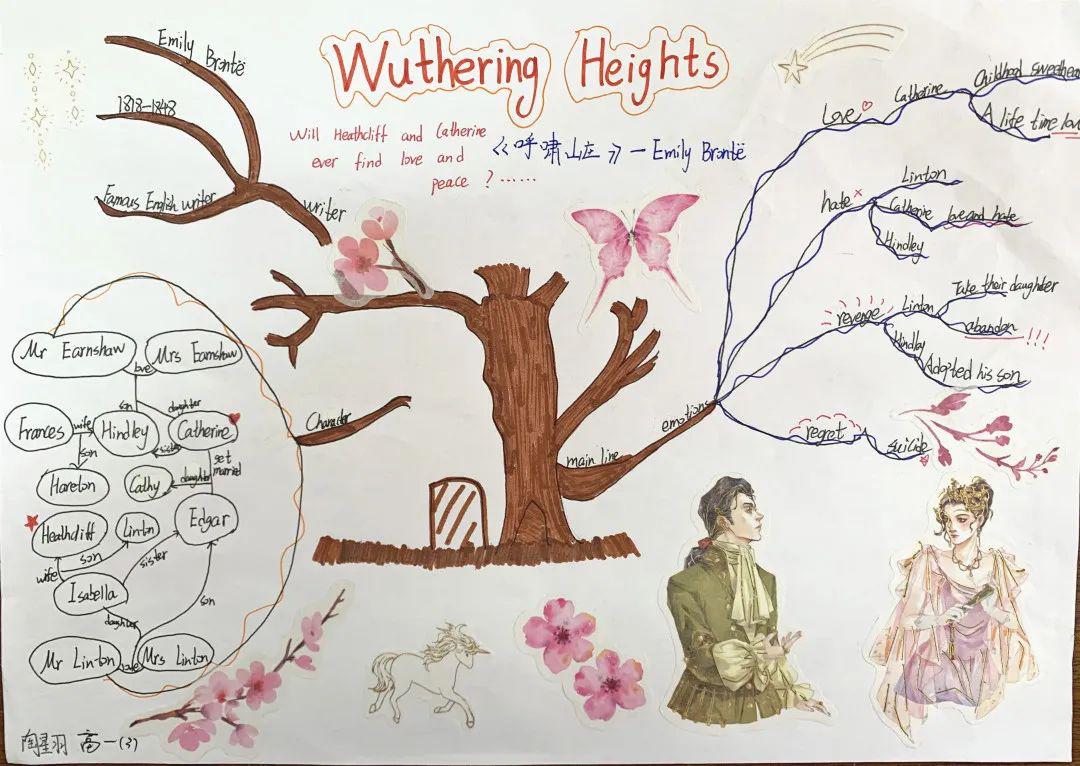 Wuthering Heights
Emily Brontë
1818-1848
Famous English writer
writer
Will Heathcliff and Catherine
ever find love and
peace ?……
《呼啸山庄》— Emily Brontë
Love
Catherine
Childhood sweethear
A life time love
hate ×
Linton
Catherine
love and hate
Hindley
revenge
Linton
Take their daughter
abandon !!!
Hindley
Adopted his son
regret
suicide
emotions
main line
Character
Mr Earnshaw
love
Mrs Earnshaw
son
daughter
Frances
wife
Hindley
sister
Catherine
son
get
married
Hareton
Cathy
daughter
Heathcliff
Linton
Edgar
son
sister
wife
Isabella
son
daughter
Mr Linton
love
Mrs Linton
陶星羽 高一(3)